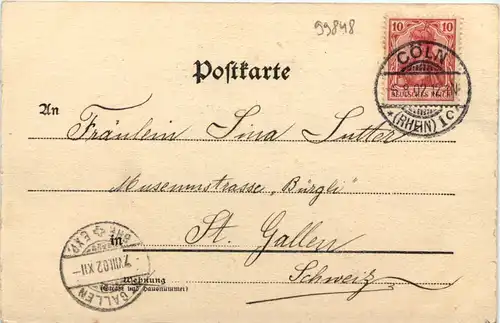 99848
10 10
CÖLN
02
*(RHEIN) 1c
Postkarte
An
Fräulein Lina Sutter
Museumstrasse „Bürgli"
in St. Gallen
Schweiz
Wohnung
(Straße und Hausnummer)
GALLEN
7.VIII.02.XII-
EXP.